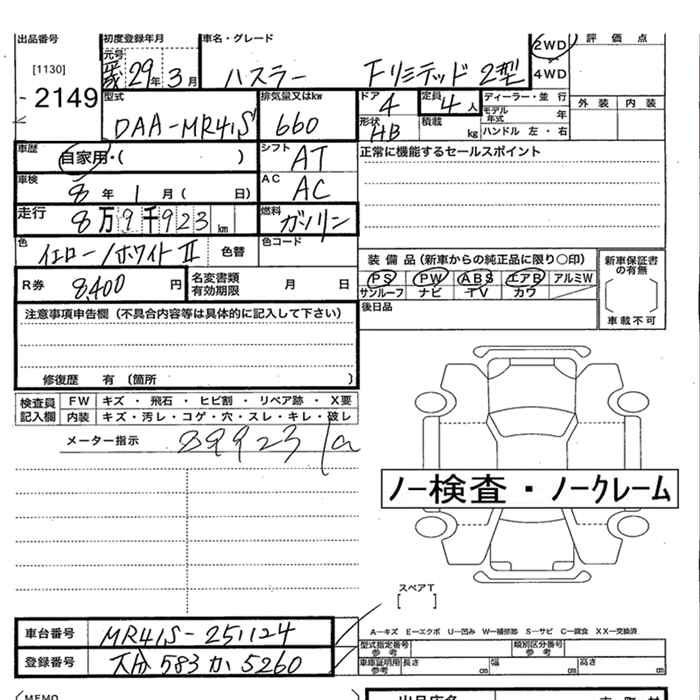 出品番号 初度登録年月 車名・グレード 2WD 評価点
[1130] 元号 29年 3月 ハスラー Fリミテッド 2型 4WD
2149 外装 内装
型式 排気量又はkw ドア 定員 ディーラー・並行
DAA-MR41S 660 4 4人 モデル年式 年
形状 HB 積載 kg ハンドル 左・右
車歴 自家用・( ) シフト AT 正常に機能するセールスポイント
車検 8年 1月( 日) AC AC
走行 8万9千923km 燃料 ガソリン
色 イエロー/ホワイトII 色替 色コード
装備品(新車からの純正品に限り○印) 新車保証書の有無
R券 8,400円 名変書類有効期限 月 日 PS PW ABS エアB アルミW
サンルーフ ナビ TV カワ
車載不可
注意事項申告欄(不具合内容等は具体的に記入して下さい) 後日品
修復歴 有〔箇所 〕
検査員記入欄 FW キズ・飛石・ヒビ割・リペア跡・X要
内装 キズ・汚レ・コゲ・穴・スレ・キレ・破レ
メーター指示 89923
ノー検査・ノークレーム
スペアT
[ ]
車台番号 MR41S-251124 A-キズ E-エクボ U-凹み W-補修跡 S-サビ C-腐食 XX-交換済
型式指定番号 参考 類別区分番号 参考
登録番号 大分 583 か 5260 車庫証明用 参考 長さ cm 幅 cm 高さ cm
(MEMO 出品店名